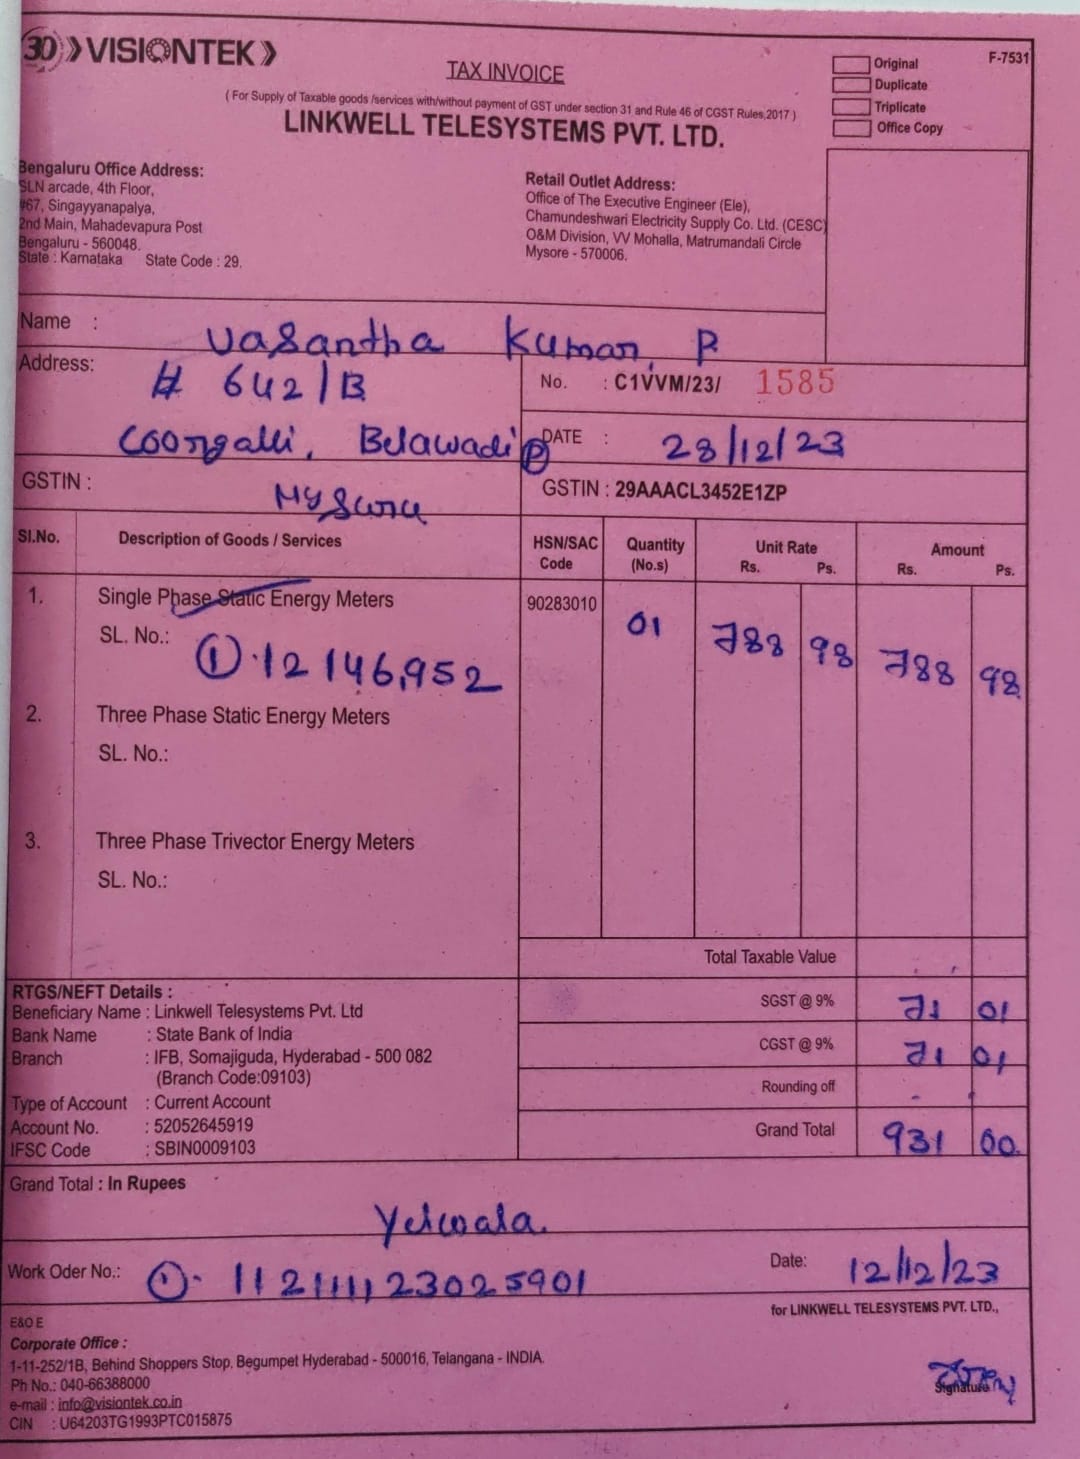 30 VISIONTEK
TAX INVOICE
F-7531
Original
Duplicate
Triplicate
Office Copy
( For Supply of Taxable goods /services with/without payment of GST under section 31 and Rule 46 of CGST Rules,2017 )
LINKWELL TELESYSTEMS PVT. LTD.
Bengaluru Office Address:
SLN arcade, 4th Floor,
#67, Singayyanapalya,
2nd Main, Mahadevapura Post
Bengaluru - 560048.
State : Karnataka State Code : 29.
Retail Outlet Address:
Office of The Executive Engineer (Ele),
Chamundeshwari Electricity Supply Co. Ltd. (CESC)
O&M Division, VV Mohalla, Matrumandali Circle
Mysore - 570006.
Name : Vasantha Kumar. P
Address: # 642/B
Coorgalli, Belawadi (P)
No. : C1VVM/23/ 1585
DATE : 28/12/23
GSTIN : Mysuru
GSTIN : 29AAACL3452E1ZP
Sl.No. Description of Goods / Services HSN/SAC Code Quantity (No.s) Unit Rate Rs. Ps. Amount Rs. Ps.
1. Single Phase Static Energy Meters 90283010 01 788 98 788 98
SL. No.: (1). 12146952
2. Three Phase Static Energy Meters
SL. No.:
3. Three Phase Trivector Energy Meters
SL. No.:
Total Taxable Value
SGST @ 9% 71 01
CGST @ 9% 71 01
Rounding off -
Grand Total 931 00
RTGS/NEFT Details :
Beneficiary Name : Linkwell Telesystems Pvt. Ltd
Bank Name : State Bank of India
Branch : IFB, Somajiguda, Hyderabad - 500 082
(Branch Code:09103)
Type of Account : Current Account
Account No. : 52052645919
IFSC Code : SBIN0009103
Grand Total : In Rupees
Yelwala.
Work Oder No.: (1). 1121111123025901
Date: 12/12/23
for LINKWELL TELESYSTEMS PVT. LTD.,
E&O E
Corporate Office :
1-11-252/1B, Behind Shoppers Stop, Begumpet Hyderabad - 500016, Telangana - INDIA.
Ph No.: 040-66388000
e-mail : info@visiontek.co.in
CIN : U64203TG1993PTC015875
Signature